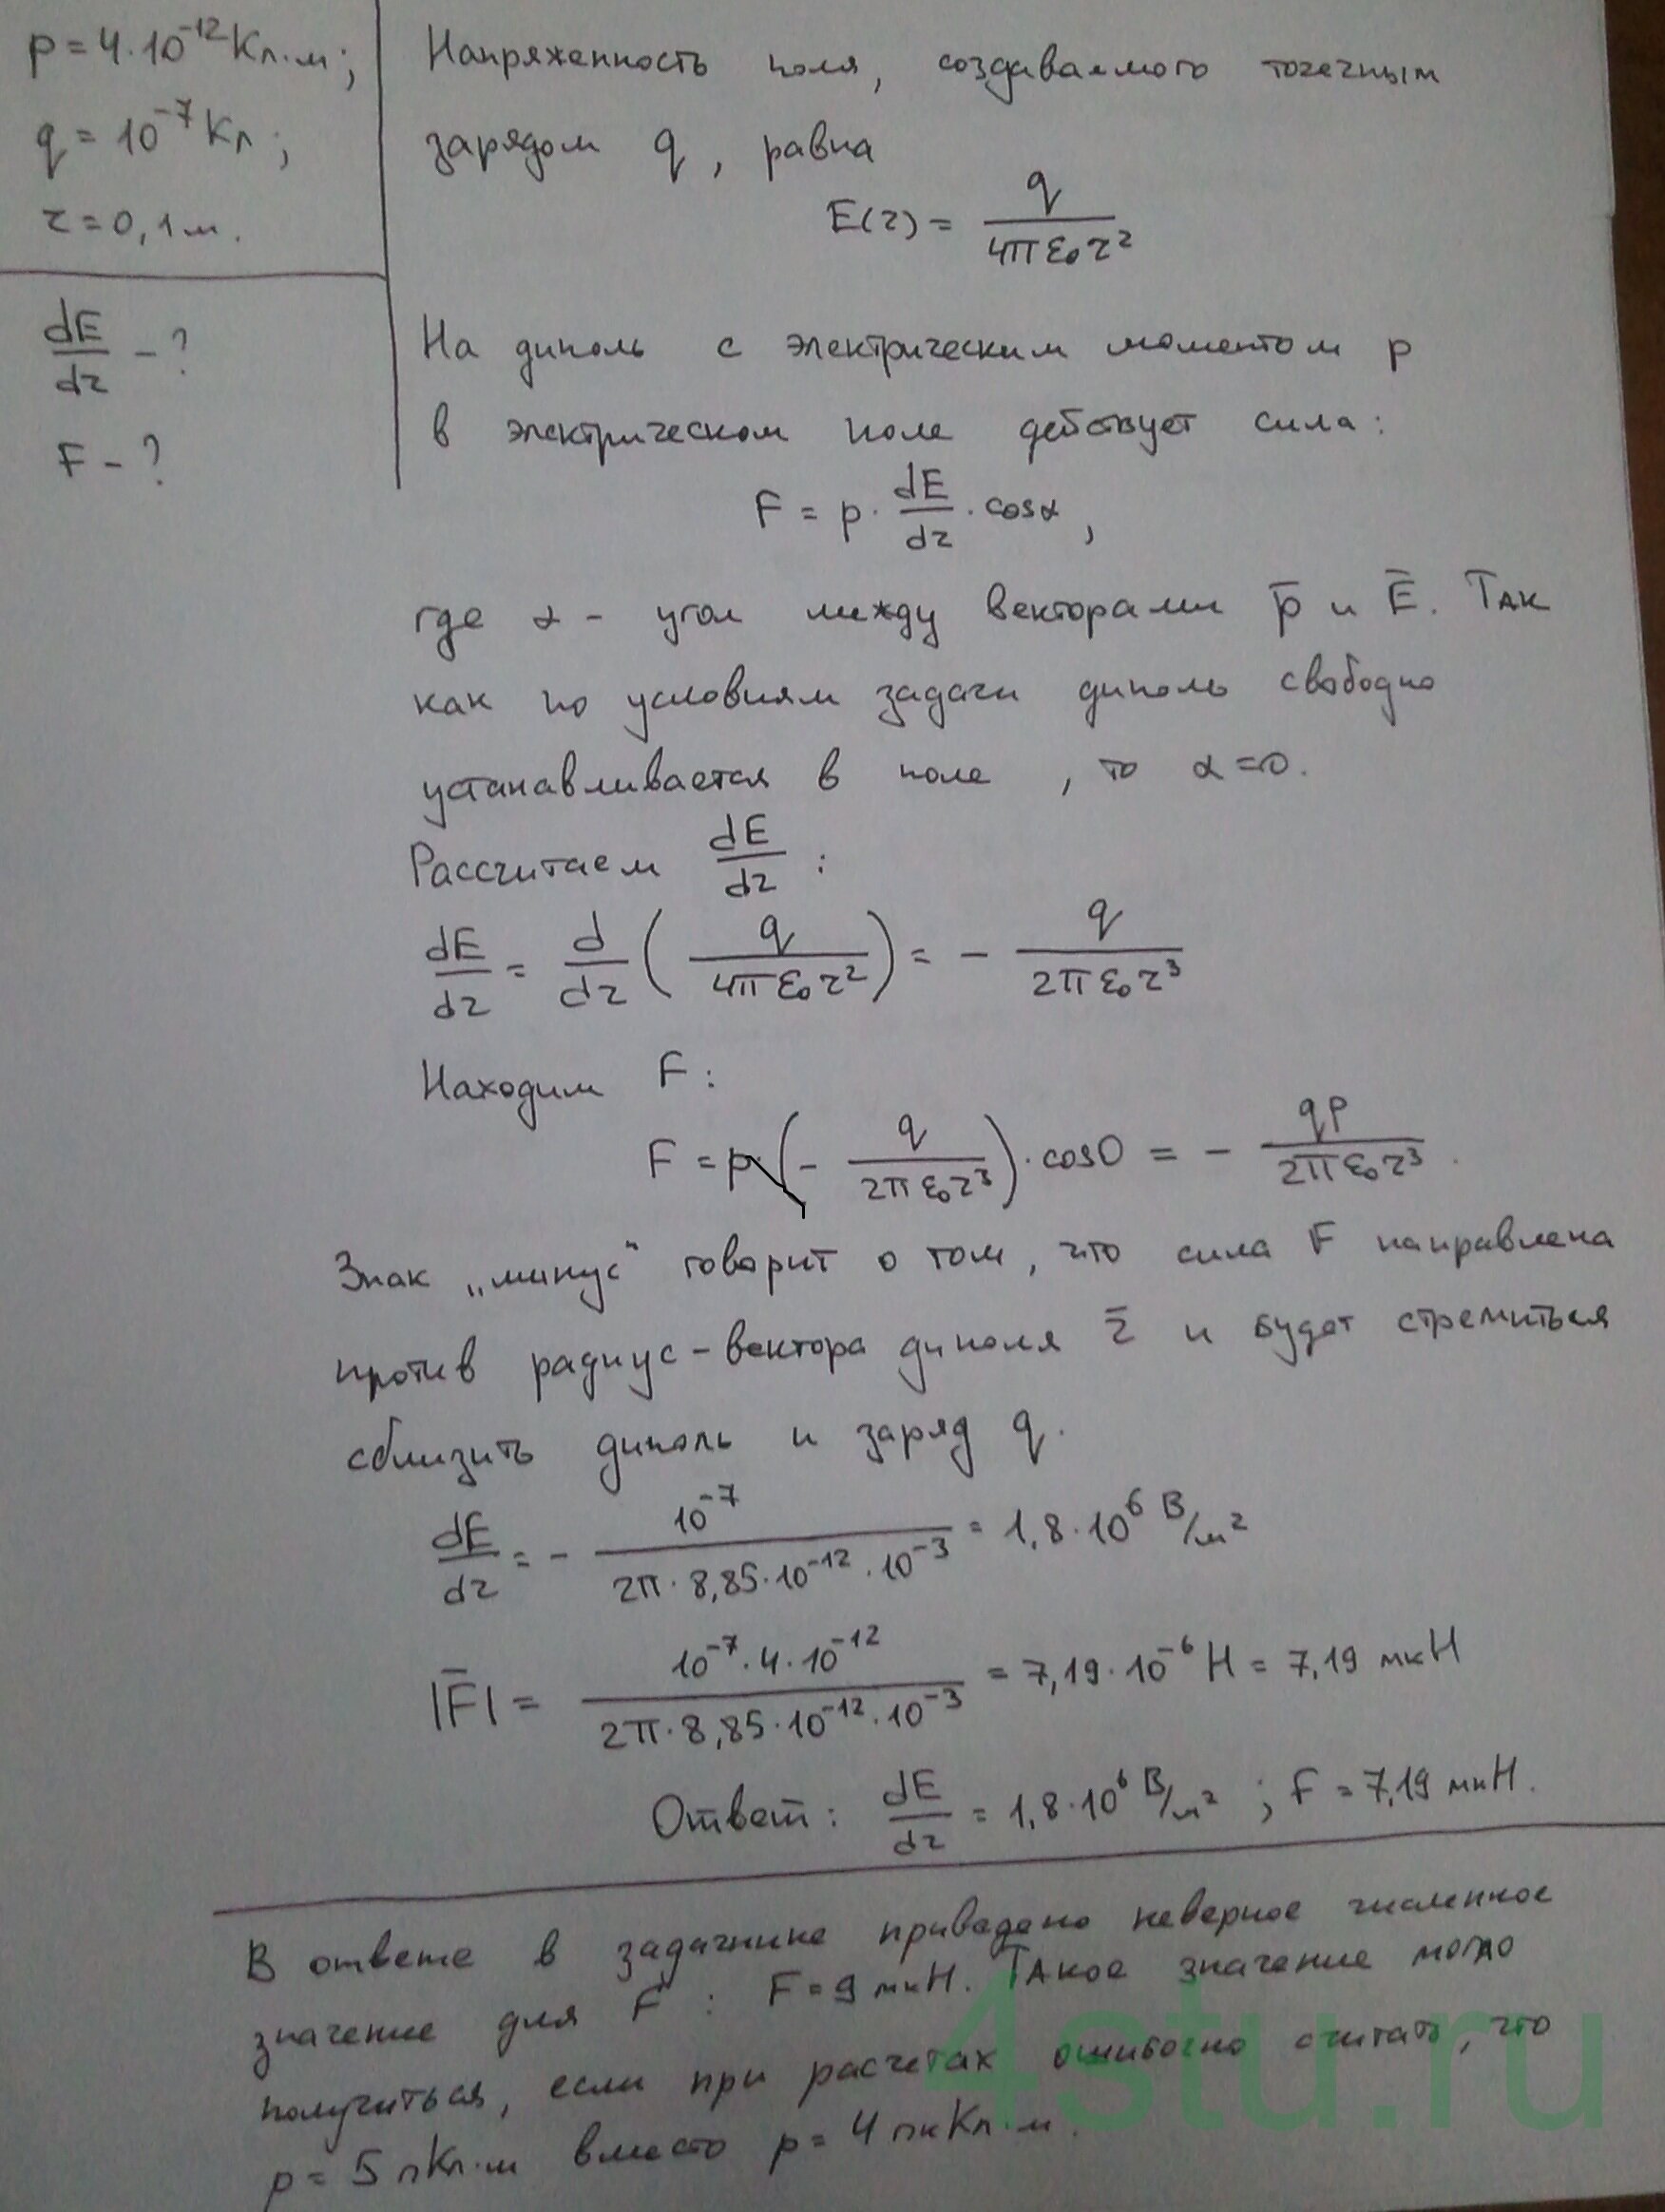 p = 4·10⁻¹² Кл·м;
q = 10⁻⁷ Кл;
r = 0,1 м.
dE/dr - ?
F - ?
Напряженность поля, создаваемого точечным
зарядом q, равна
E(r) = q/(4πε₀r²)
На диполь с электрическим моментом p
в электрическом поле действует сила:
F = p · dE/dr · cosα,
где α - угол между векторами p̄ и Ē. Так
как по условиям задачи диполь свободно
устанавливается в поле, то α=0.
Рассчитаем dE/dr :
dE/dr = d/dr (q/(4πε₀r²)) = - q/(2πε₀r³)
Находим F:
F = p·(- q/(2πε₀r³))·cos0 = - qp/(2πε₀r³).
Знак „минус“ говорит о том, что сила F направлена
против радиус-вектора диполя r̄ и будет стремиться
сблизить диполь и заряд q.
dE/dr = - 10⁻⁷/(2π·8,85·10⁻¹²·10⁻³) = 1,8·10⁶ В/м²
|F̄| = 10⁻⁷·4·10⁻¹²/(2π·8,85·10⁻¹²·10⁻³) = 7,19·10⁻⁶ Н = 7,19 мкН
Ответ: dE/dr = 1,8·10⁶ В/м² ; F = 7,19 мкН.
В ответе в задачнике приведено неверное численное
значение для F : F = 9 мкН. Такое значение могло
получиться, если при расчетах ошибочно считать, что
p = 5 пКл·м вместо p = 4 пкКл·м.
4stu.ru